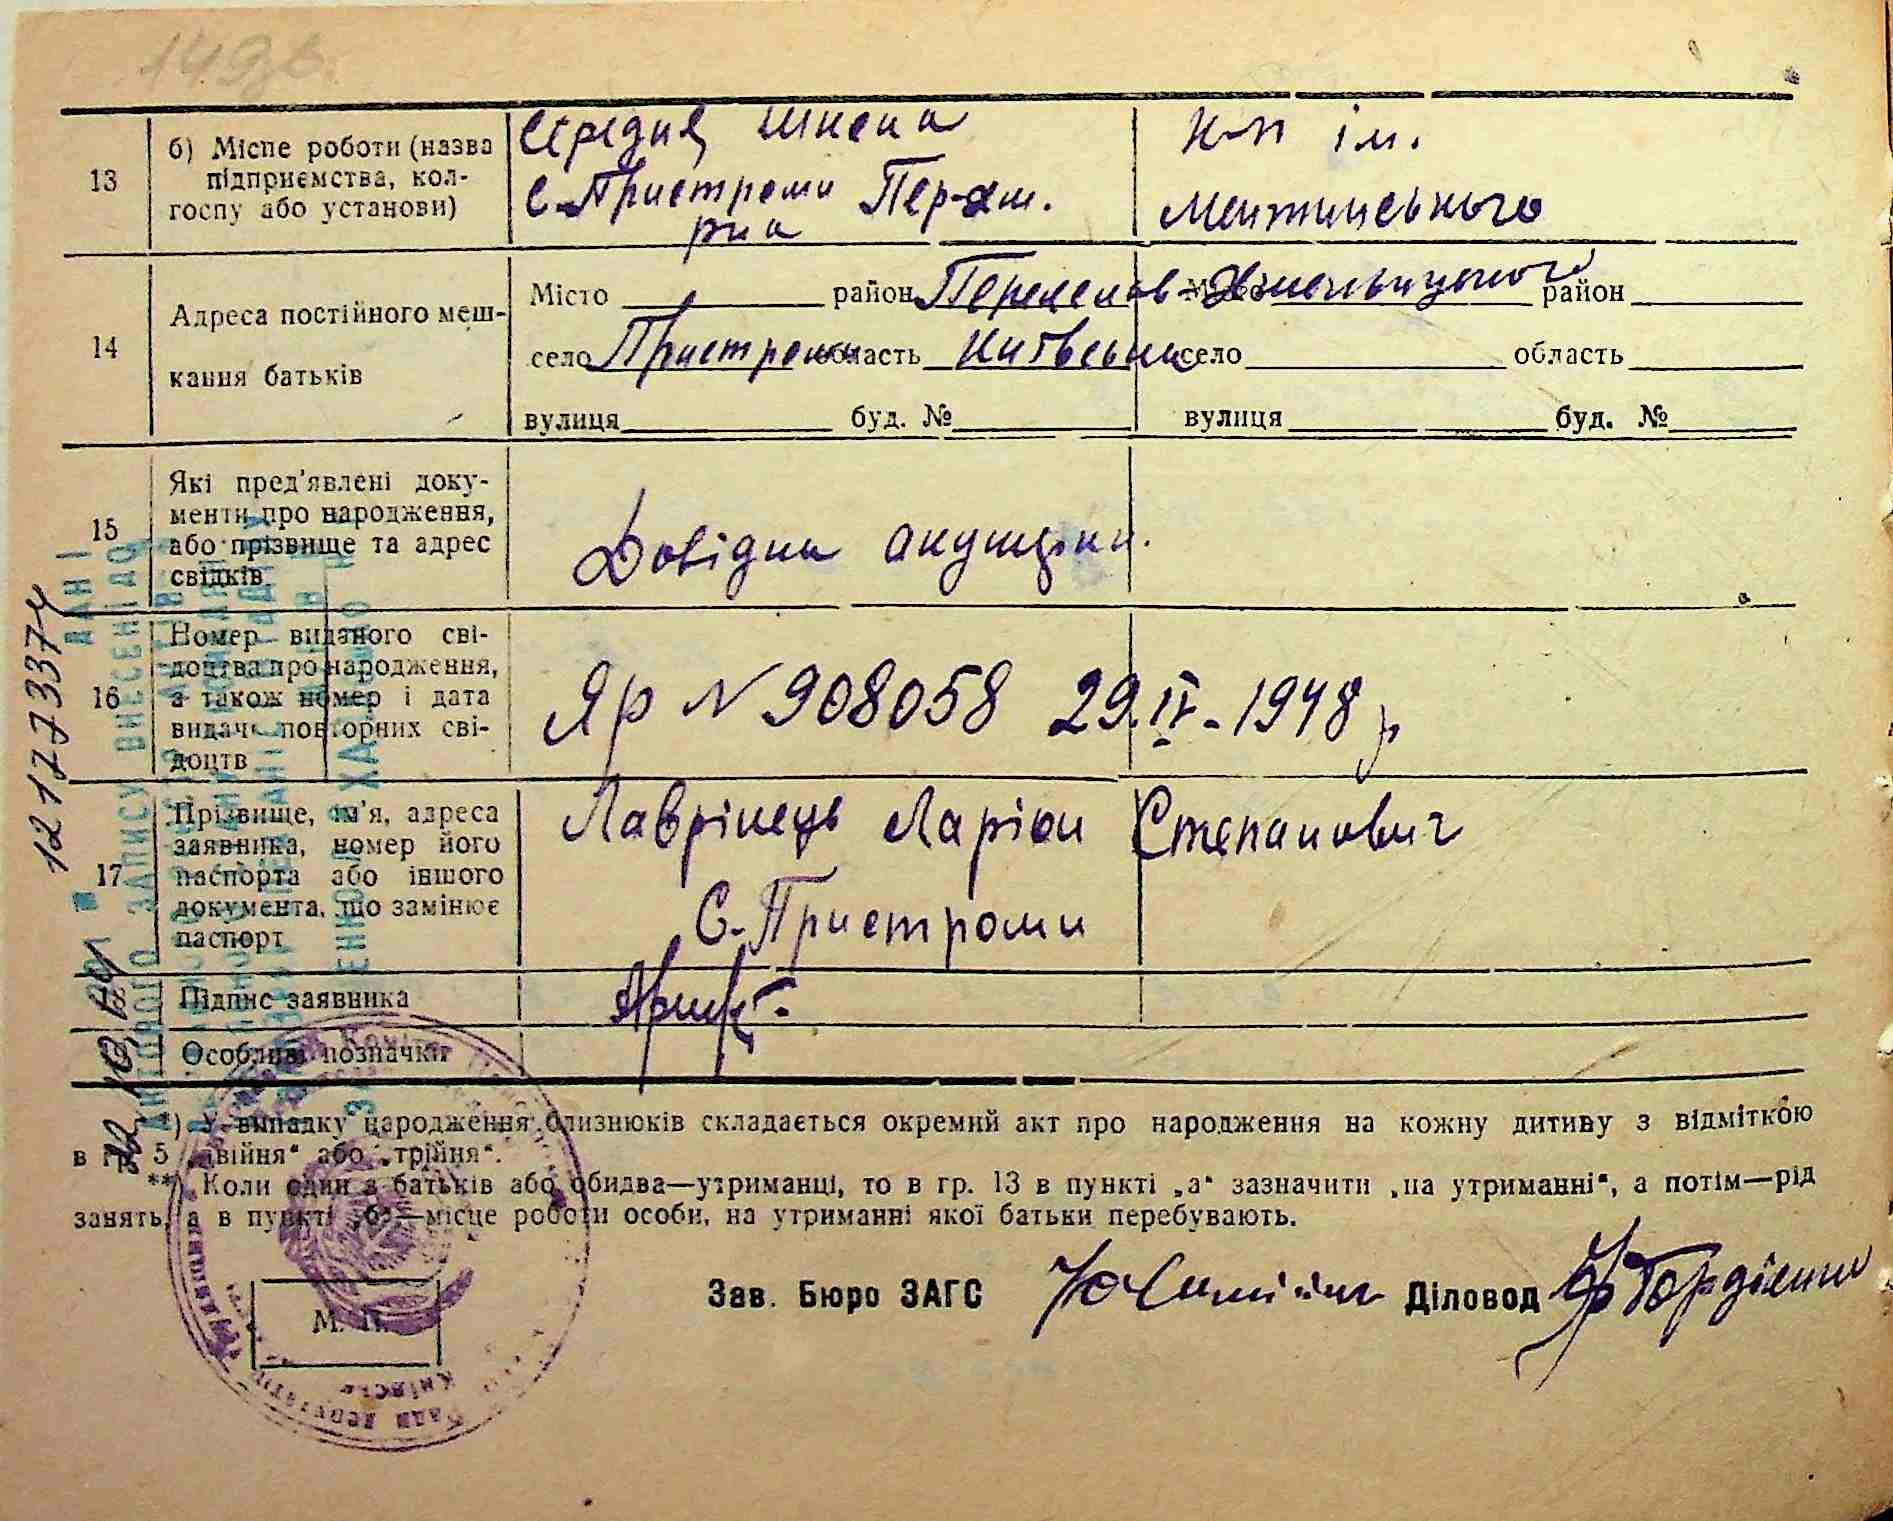 149зв.
13
б) Місце роботи (назва
підприємства, кол-
госпу або установи)
Середня школа
с. Пристроми Пер-Хм.
р-на
к-п ім.
Менжинського
14
Адреса постійного меш-
кання батьків
Місто район Переяслав-Хмельницького район
село Пристроми область Київська село область
вулиця буд. № вулиця буд. №
15
Які пред'явлені доку-
менти про народження,
або прізвище та адрес
свідків
Довідка акушерки.
16
Номер виданого сві-
доцтва про народження,
а також номер і дата
видачі повторних сві-
доцтв
Яр N 908058 29.IV-1948 р
17
Прізвище, ім'я, адреса
заявника, номер його
паспорта або іншого
документа, що замінює
паспорт
Лаврінець Ларіон Степанович
С. Пристроми
Підпис заявника
Особливі позначки
*) У випадку народження близнюків складається окремий акт про народження на кожну дитину з відміткою
в гр. 5 „двійня“ або „трійня“.
**) Коли один з батьків або обидва—утриманці, то в гр. 13 в пункті „а“ зазначити „на утриманні“, а потім—рід
занять, а в пункті „б“—місце роботи особи, на утриманні якої батьки перебувають.
М. П.
Зав. Бюро ЗАГС Діловод Гордієнко
12177337